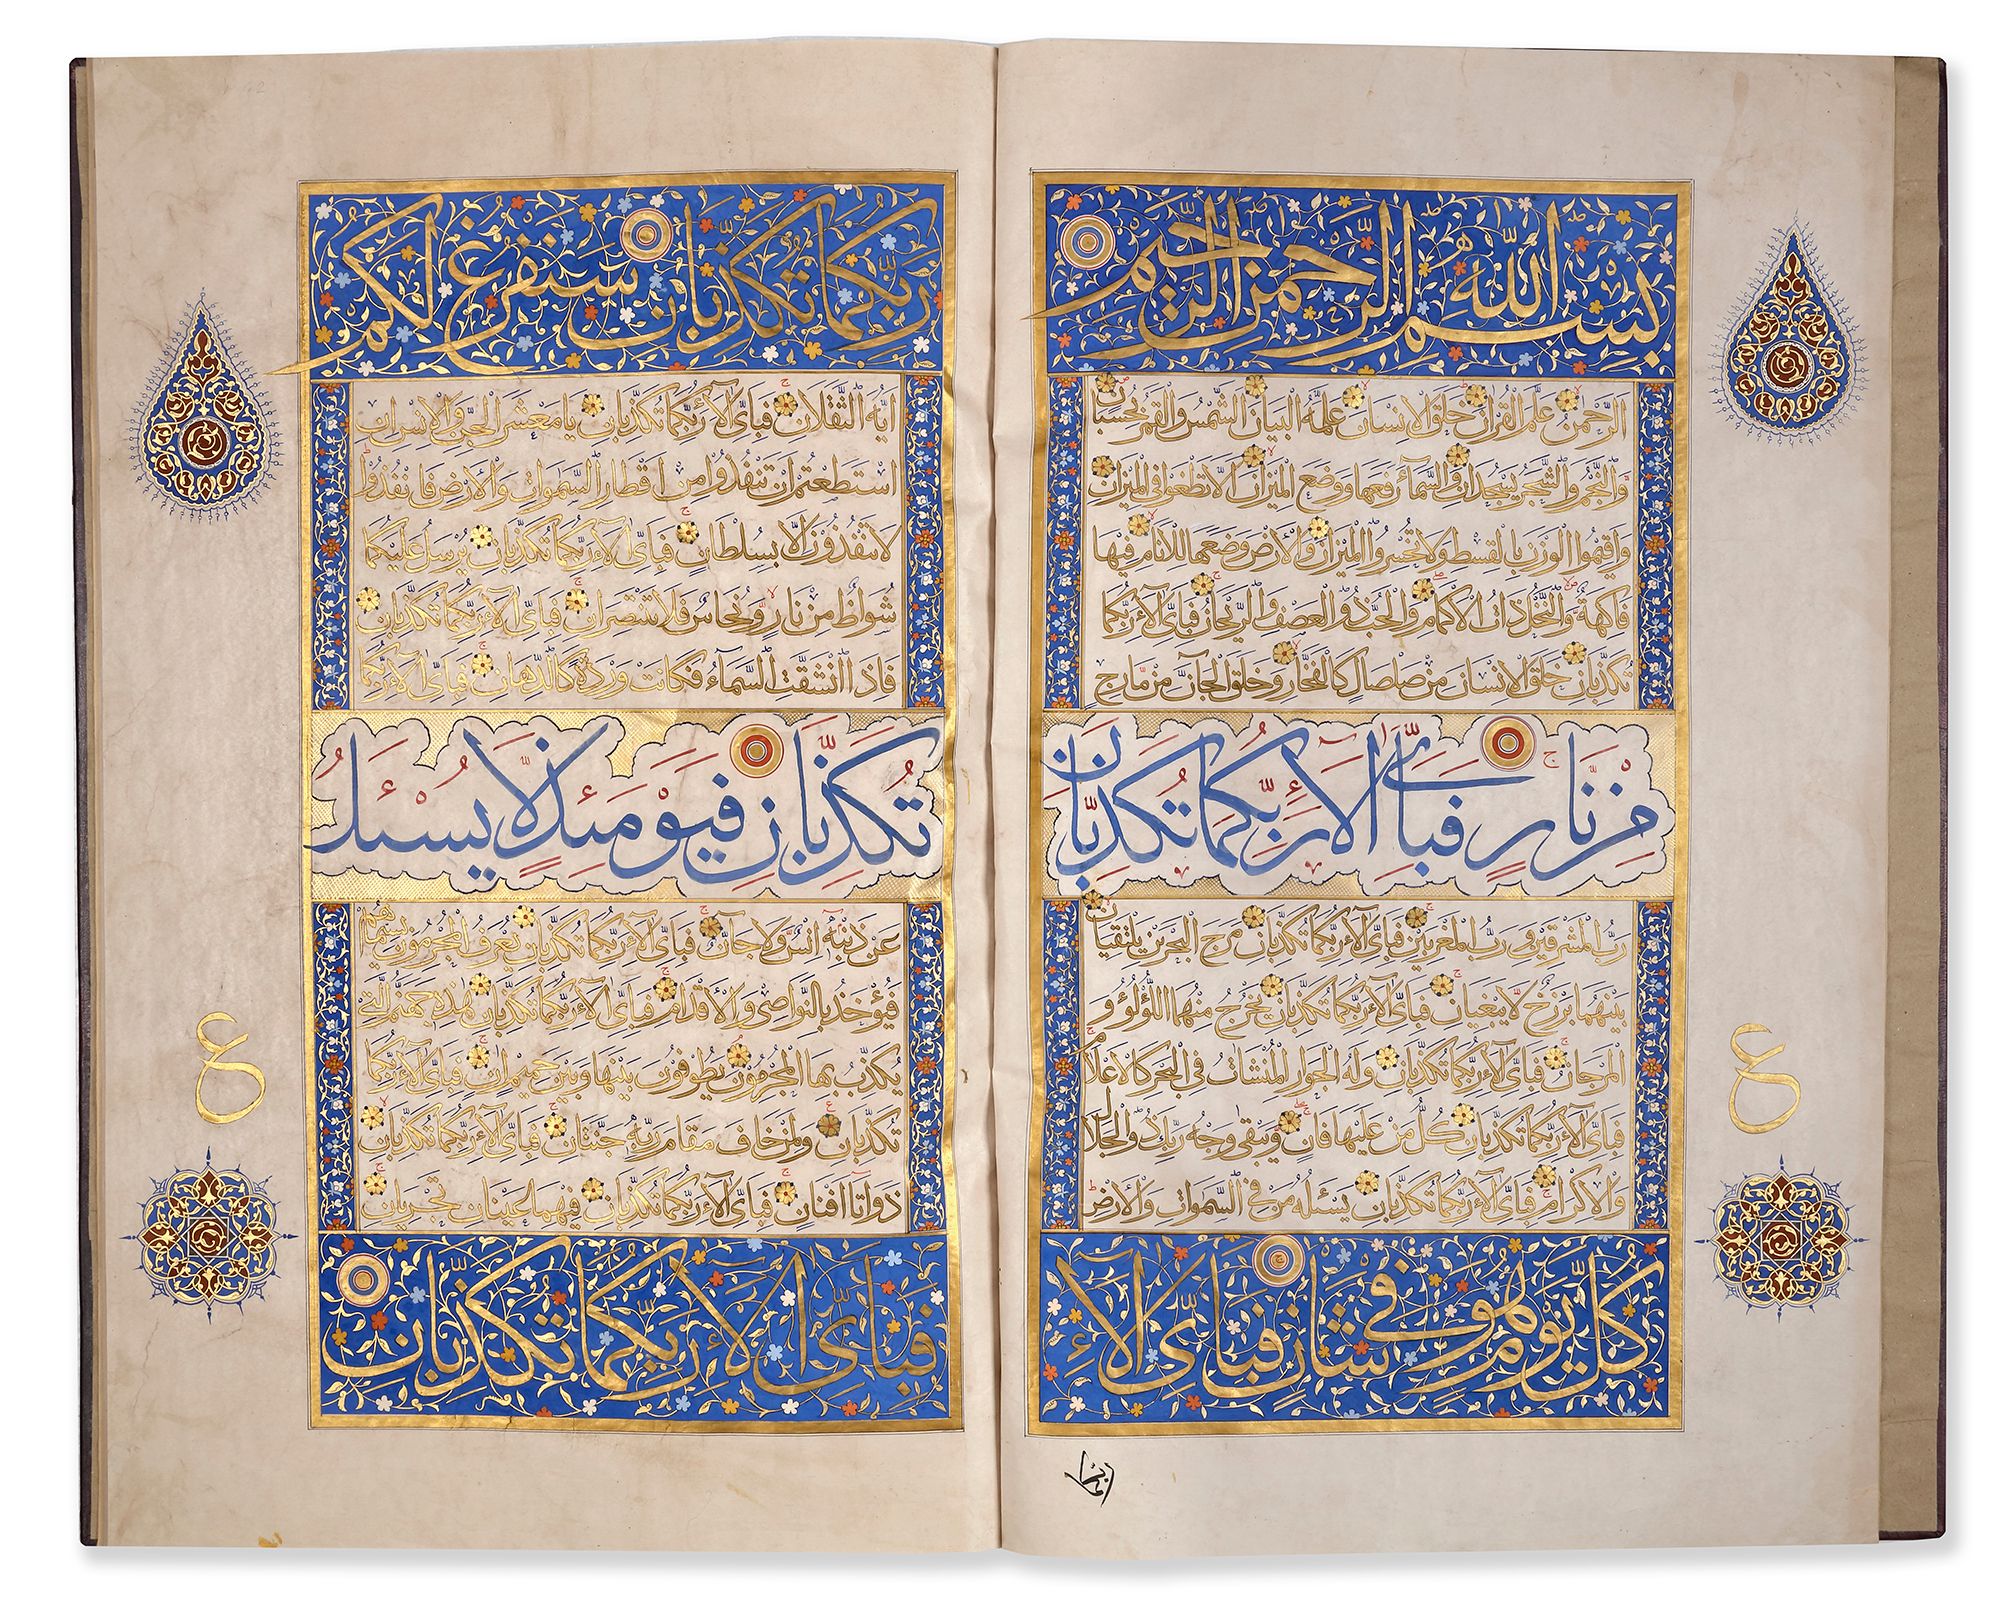 بسم الله الرحمن الرحيم
الرحمن علم القران خلق الانسان علمه البيان الشمس والقمر بحسبان
والنجم والشجر يسجدان والسمآء رفعها ووضع الميزان الا تطغوا في الميزان
واقيموا الوزن بالقسط ولا تخسروا الميزان والارض وضعها للانام فيها
فاكهة والنخل ذات الاكمام والحب ذو العصف والريحان فباي الآء ربكما
تكذبان خلق الانسان من صلصال كالفخار وخلق الجآن من مارج
من نار فباي الاء ربكما تكذبان
رب المشرقين ورب المغربين فباي الآء ربكما تكذبان مرج البحرين يلتقيان
بينهما برزخ لا يبغيان فباي الآء ربكما تكذبان يخرج منهما اللؤلؤ و
المرجان فباي الآء ربكما تكذبان وله الجوار المنشات في البحر كالاعلام
فباي الآء ربكما تكذبان كل من عليها فان ويبقى وجه ربك ذو الجلال
والاكرام فباي الآء ربكما تكذبان يسئله من في السموات والارض
كل يوم هو في شان فباي الآء
ربكما تكذبان سنفرغ لكم
ايه الثقلان فباي الآء ربكما تكذبان يا معشر الجن والانس ان
استطعتم ان تنفذوا من اقطار السموات والارض فانفذوا
لا تنفذون الا بسلطان فباي الآء ربكما تكذبان يرسل عليكما
شواظ من نار ونحاس فلا تنتصران فباي الآء ربكما تكذبان
فاذا انشقت السمآء فكانت وردة كالدهان فباي الآء ربكما
تكذبان فيومئذ لا يسئل
عن ذنبه انس ولا جآن فباي الآء ربكما تكذبان يعرف المجرمون بسيماهم
فيؤخذ بالنواصي والاقدام فباي الآء ربكما تكذبان هذه جهنم التي
يكذب بها المجرمون يطوفون بينها وبين حميم ان فباي الآء ربكما
تكذبان ولمن خاف مقام ربه جنتان فباي الآء ربكما تكذبان
ذواتا افنان فباي الآء ربكما تكذبان فيهما عينان تجريان
فباي الآء ربكما تكذبان
ع
ع